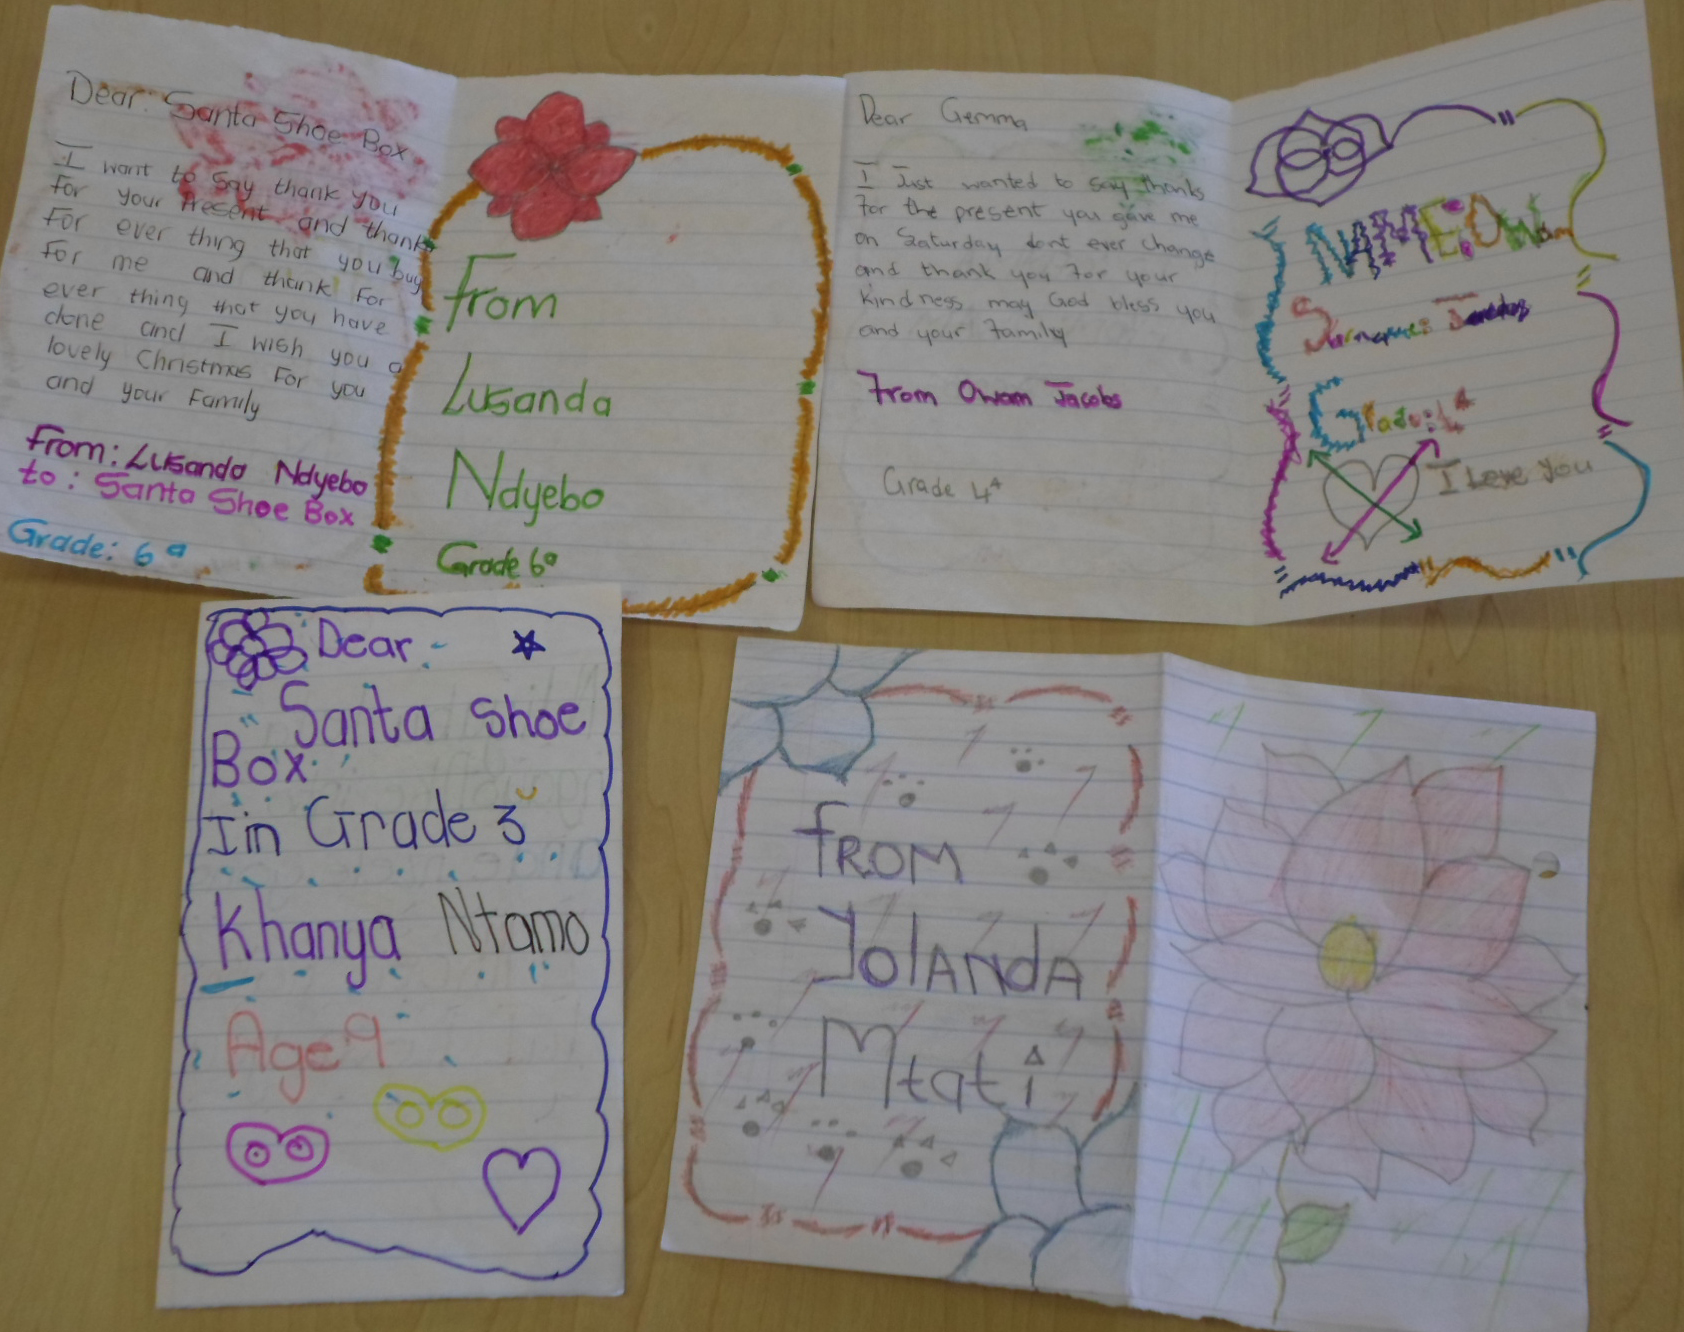 Dear: Santa Shoe Box
I want to say thank you
for your Present and thank
for ever thing that you buy
for me and thank for
ever thing that you have
done and I wish you a
lovely Christmas for you
and your Family
From: Lusanda Ndyebo
to: Santa Shoe Box
Grade: 6a
From
Lusanda
Ndyebo
Grade 6a
Dear Gemma
I Just wanted to say thanks
For the present you gave me
on Saturday dont ever change
and thank you for your
kindness may God bless you
and your family
From Owam Jacobs
Grade 4A
NAME: Owam
Surname: Jacobs
Grade: 4A
I Love You
Dear
Santa Shoe
Box
I'm Grade 3
Khanya Ntamo
Age 9
FROM
YolANdA
Mtati